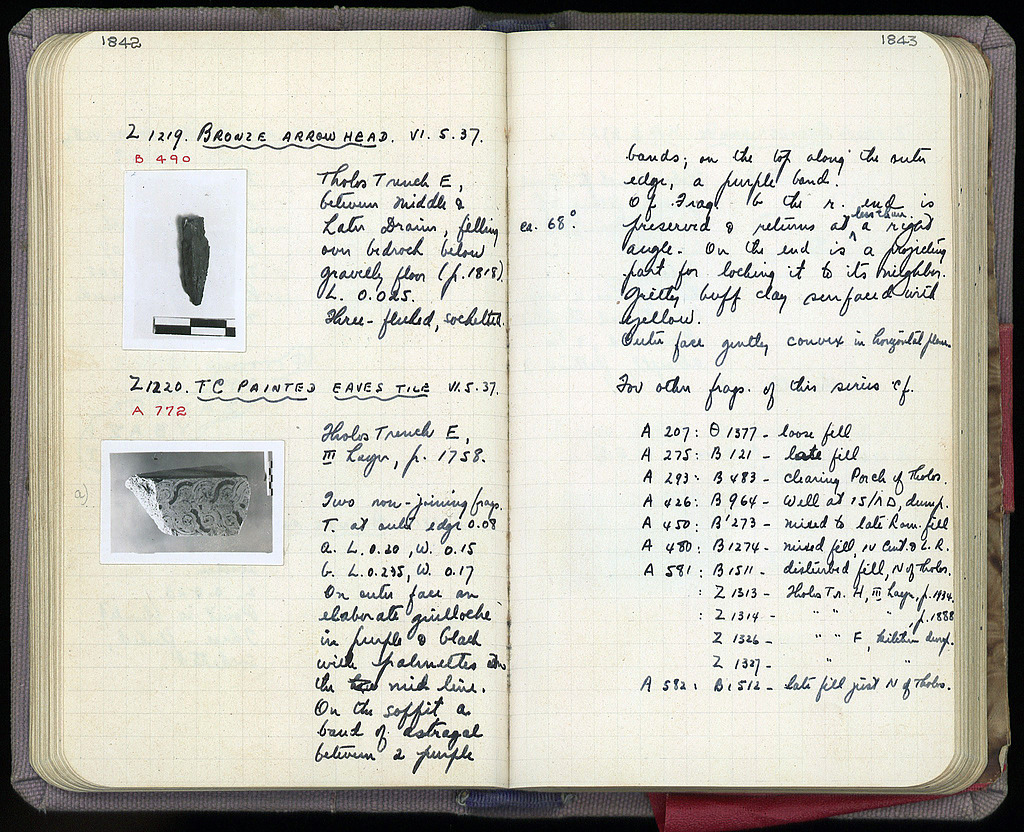 1842
Z 1219. BRONZE ARROWHEAD. VI. 5. 37.
B 490
Tholos Trench E,
between Middle &
Later Drains, filling
over bedrock below
gravelly floor (p. 1818)
L. 0.025.
Three-fluted, socketed.
Z1220. TC PAINTED EAVES TILE VI. 5. 37.
A 772
Tholos Trench E,
III Layer, p. 1758.
a)
Two non-joining frags.
T. at outer edge 0.08
a. L. 0.20, W. 0.15
b. L. 0.235, W. 0.17
On outer face an
elaborate guilloche
in purple & black
with palmettes
the mid line.
On the soffit a
band of astragal
between 2 purple
1843
bands; on the top along the outer
edge, a purple band.
Of Frag. b the r. end is
ca. 68°. preserved & returns at less than a right
angle. On the end is a projecting
part for locking it to its neighbor.
Gritty buff clay surfaced with
yellow.
Outer face gently convex in horizontal plane
For other frags. of this series cf.
A 207: Θ 1377 - loose fill
A 275: B 121 - late fill
A 293: B 483 - clearing Porch of Tholos.
A 426: B 964 - Well at 15/ΛD, dump.
A 450: B 1273 - mixed to late Rom. fill
A 480: B 1274 - mixed fill, IV Cent. & L. R.
A 581: B 1511 - disturbed fill, N of Tholos.
: Z 1313 - Tholos Tr. H, III Layer, p. 1934.
: Z 1314 - " " " , p. 1888
Z 1326 - " " F, kitchen dump.
Z 1327 - " "
A 582: B 1512 - late fill just N of Tholos.